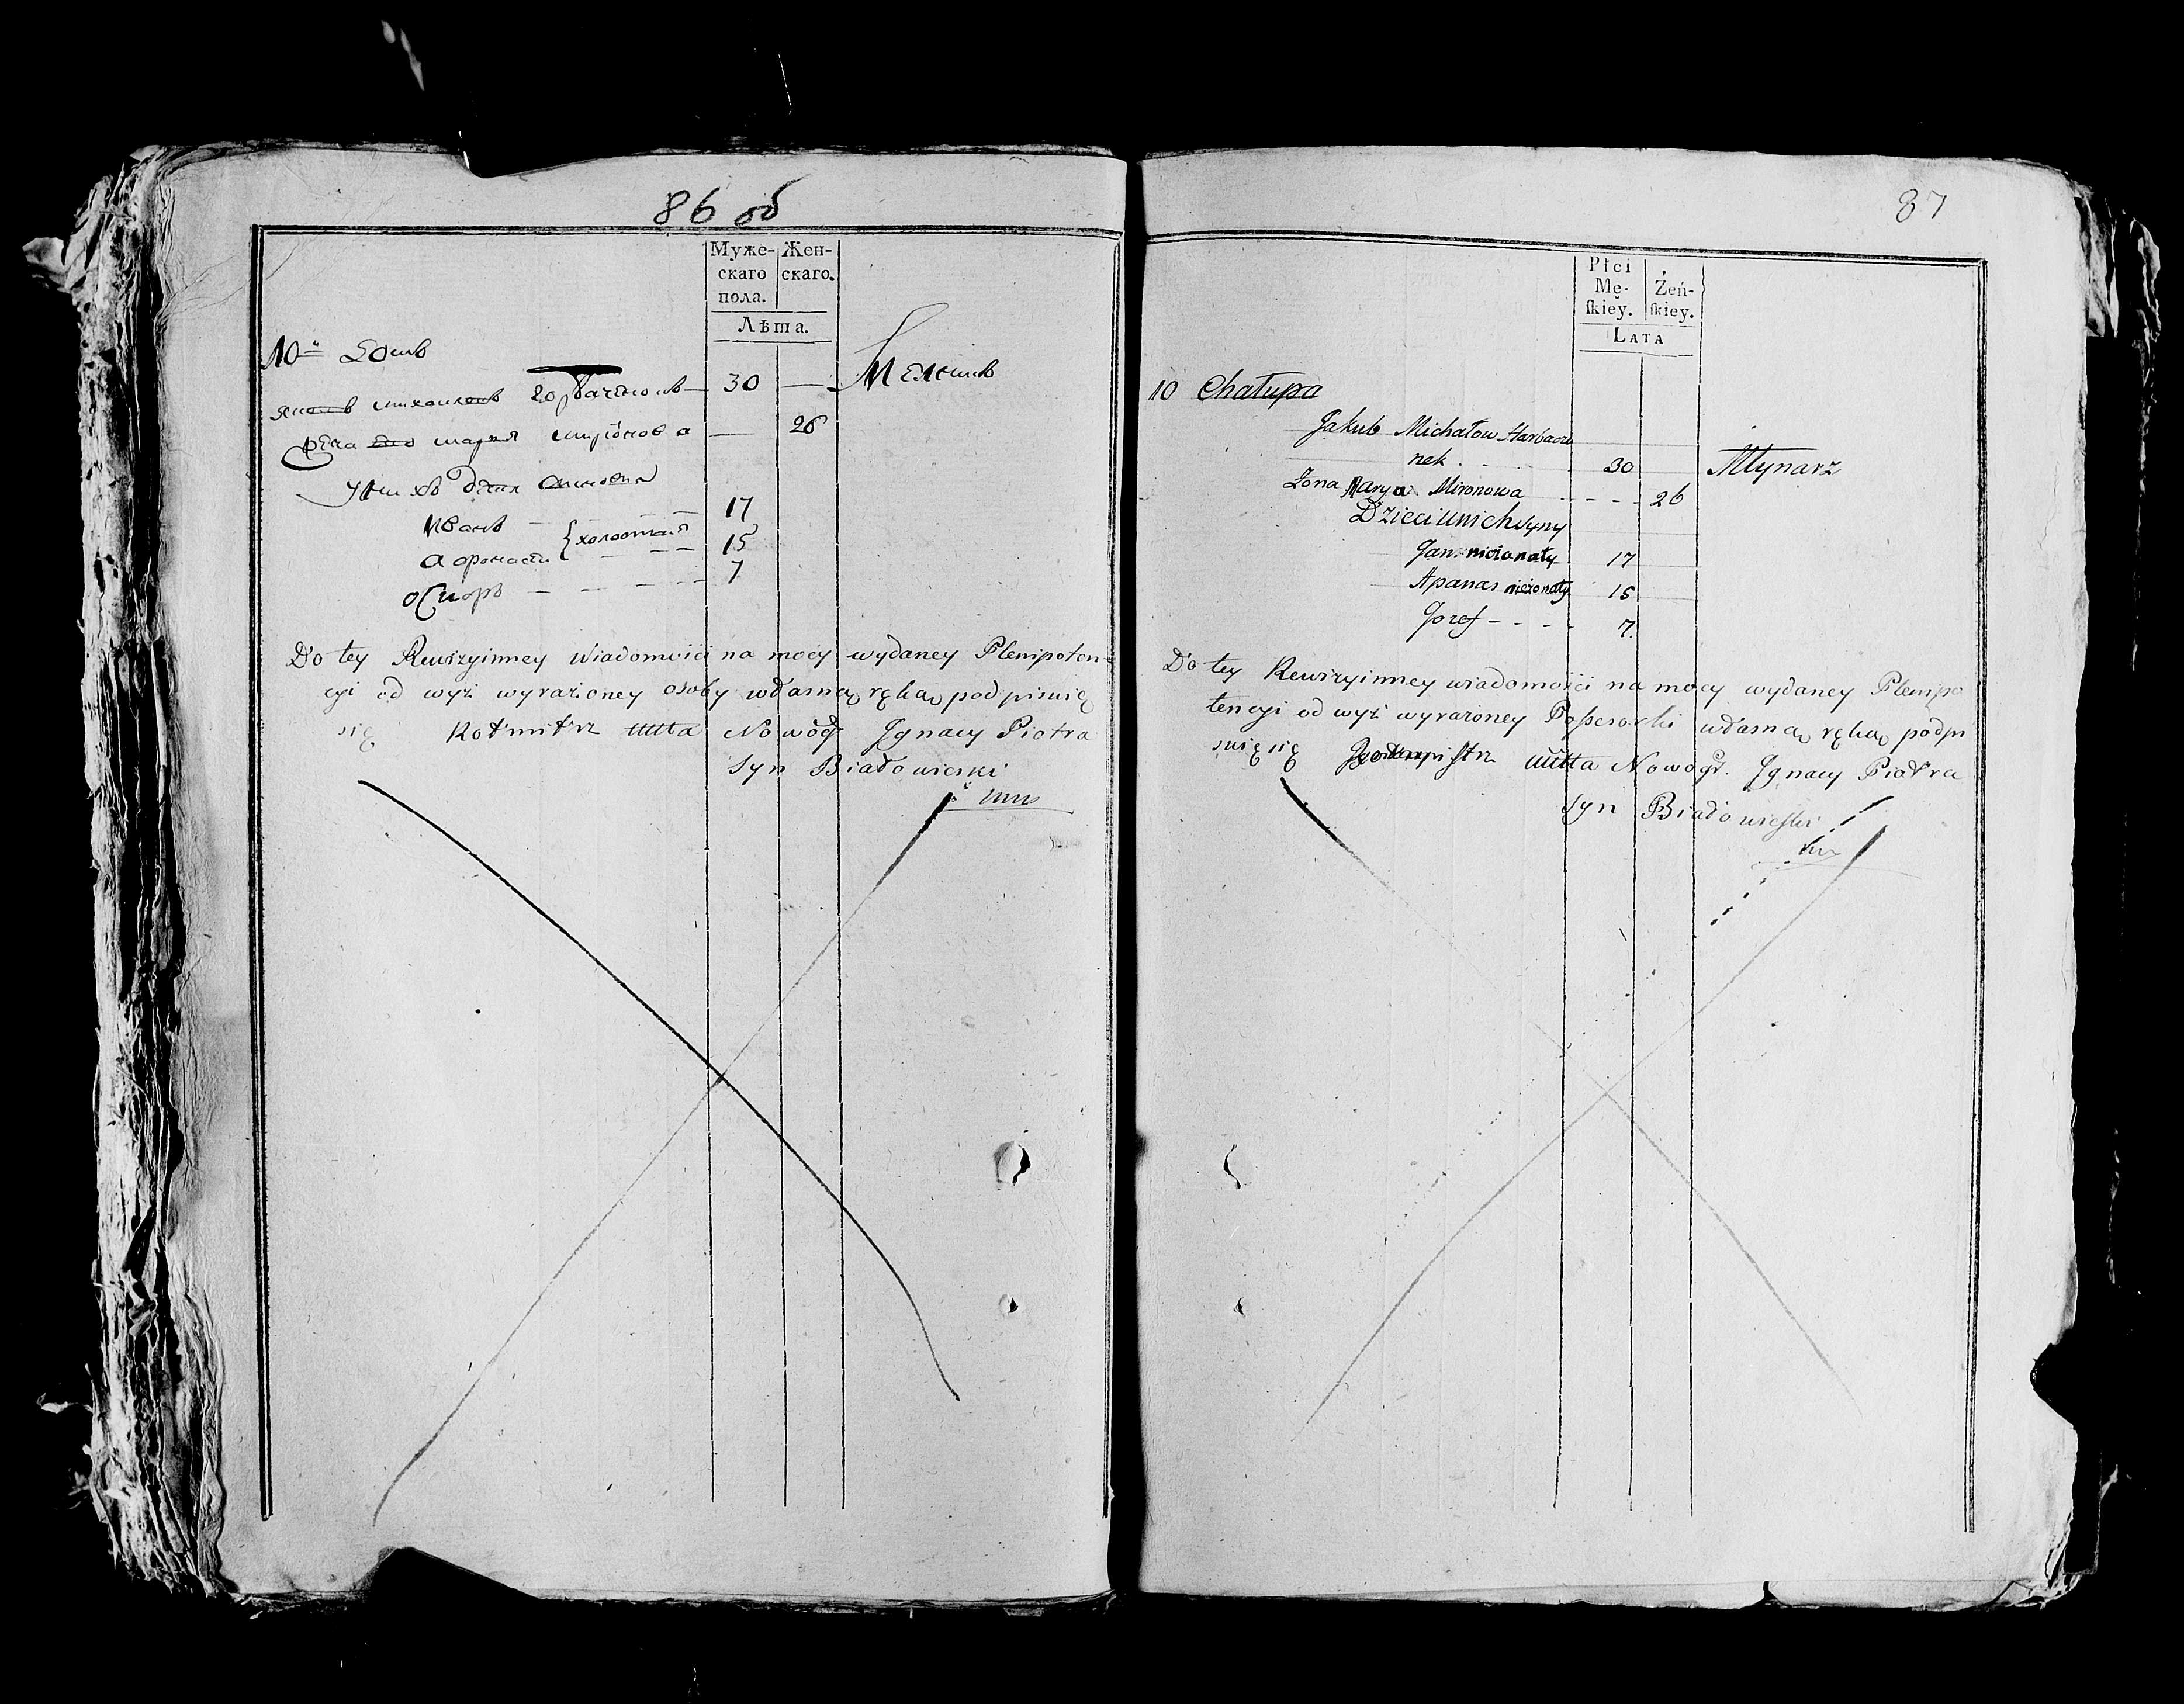 86 об
Муже-
скаго
пола.
Жен-
скаго.
Лѣта.
10й Домъ
Яковъ Михаиловъ Горбаченокъ — 30 — Мелникъ
Жена его Марья Миронова — 26
У нихъ дети Сыновья
Иванъ 17
холостая
Афонасей 15
Осипъ 7
Do tey Rewizyinney Wiadomości na mocy wydaney Plenipoten-
cyi od wyż wyrażoney osoby własną ręką podpisuię
się Rotmistrz Wtta Nowog. Ignacy Piotra
Syn Biadowieski
mp
87
Płci
Mę-
ſkiey.
Żeń-
ſkiey.
Lata
10 Chałupa
Jakub Michałow Harbacze
nek 30 Młynarz
Żona Marya Mironowa - - - 26
Dzieci u nich syny
Jan nieżonaty 17
Apanas nieżonaty 15
Jozef - - - - 7.
Do tey Rewizyinney wiadomości na mocy wydaney Plenipo
tencyi od wyż wyrażoney Possesorki własną ręką podpi
suię się Rotmistrz Wtta Nowogr. Ignacy Piotra
Syn Biadowieski
mp